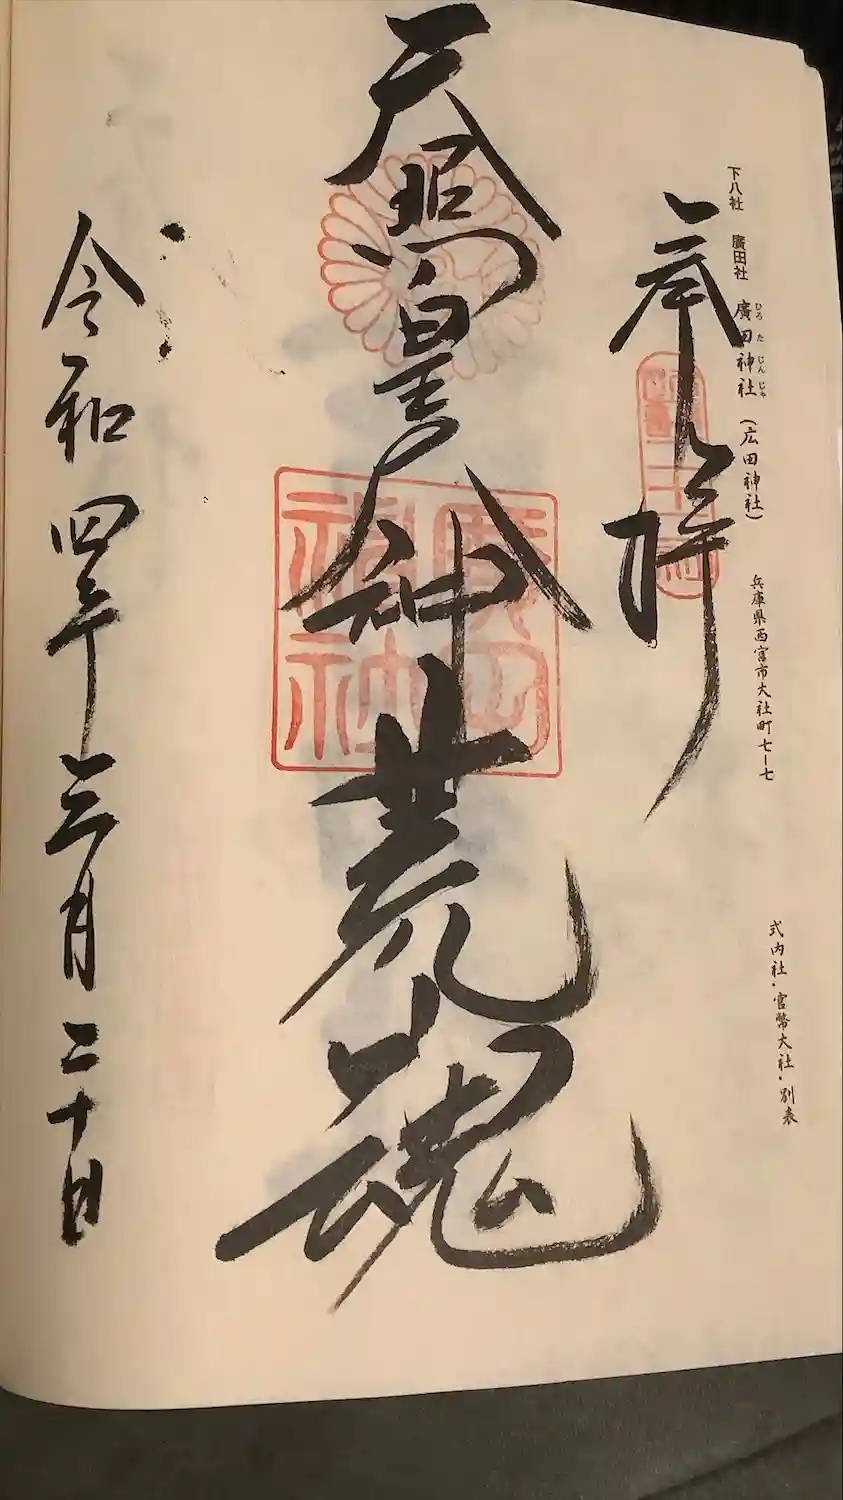 下八社 廣田社 廣田神社（広田神社） 兵庫県西宮市大社町七ー七 式内社・官幣大社・別表
ひろ た じん じゃ
奉拝
天照皇大神荒魂
廣田神社
令和四年三月二十日